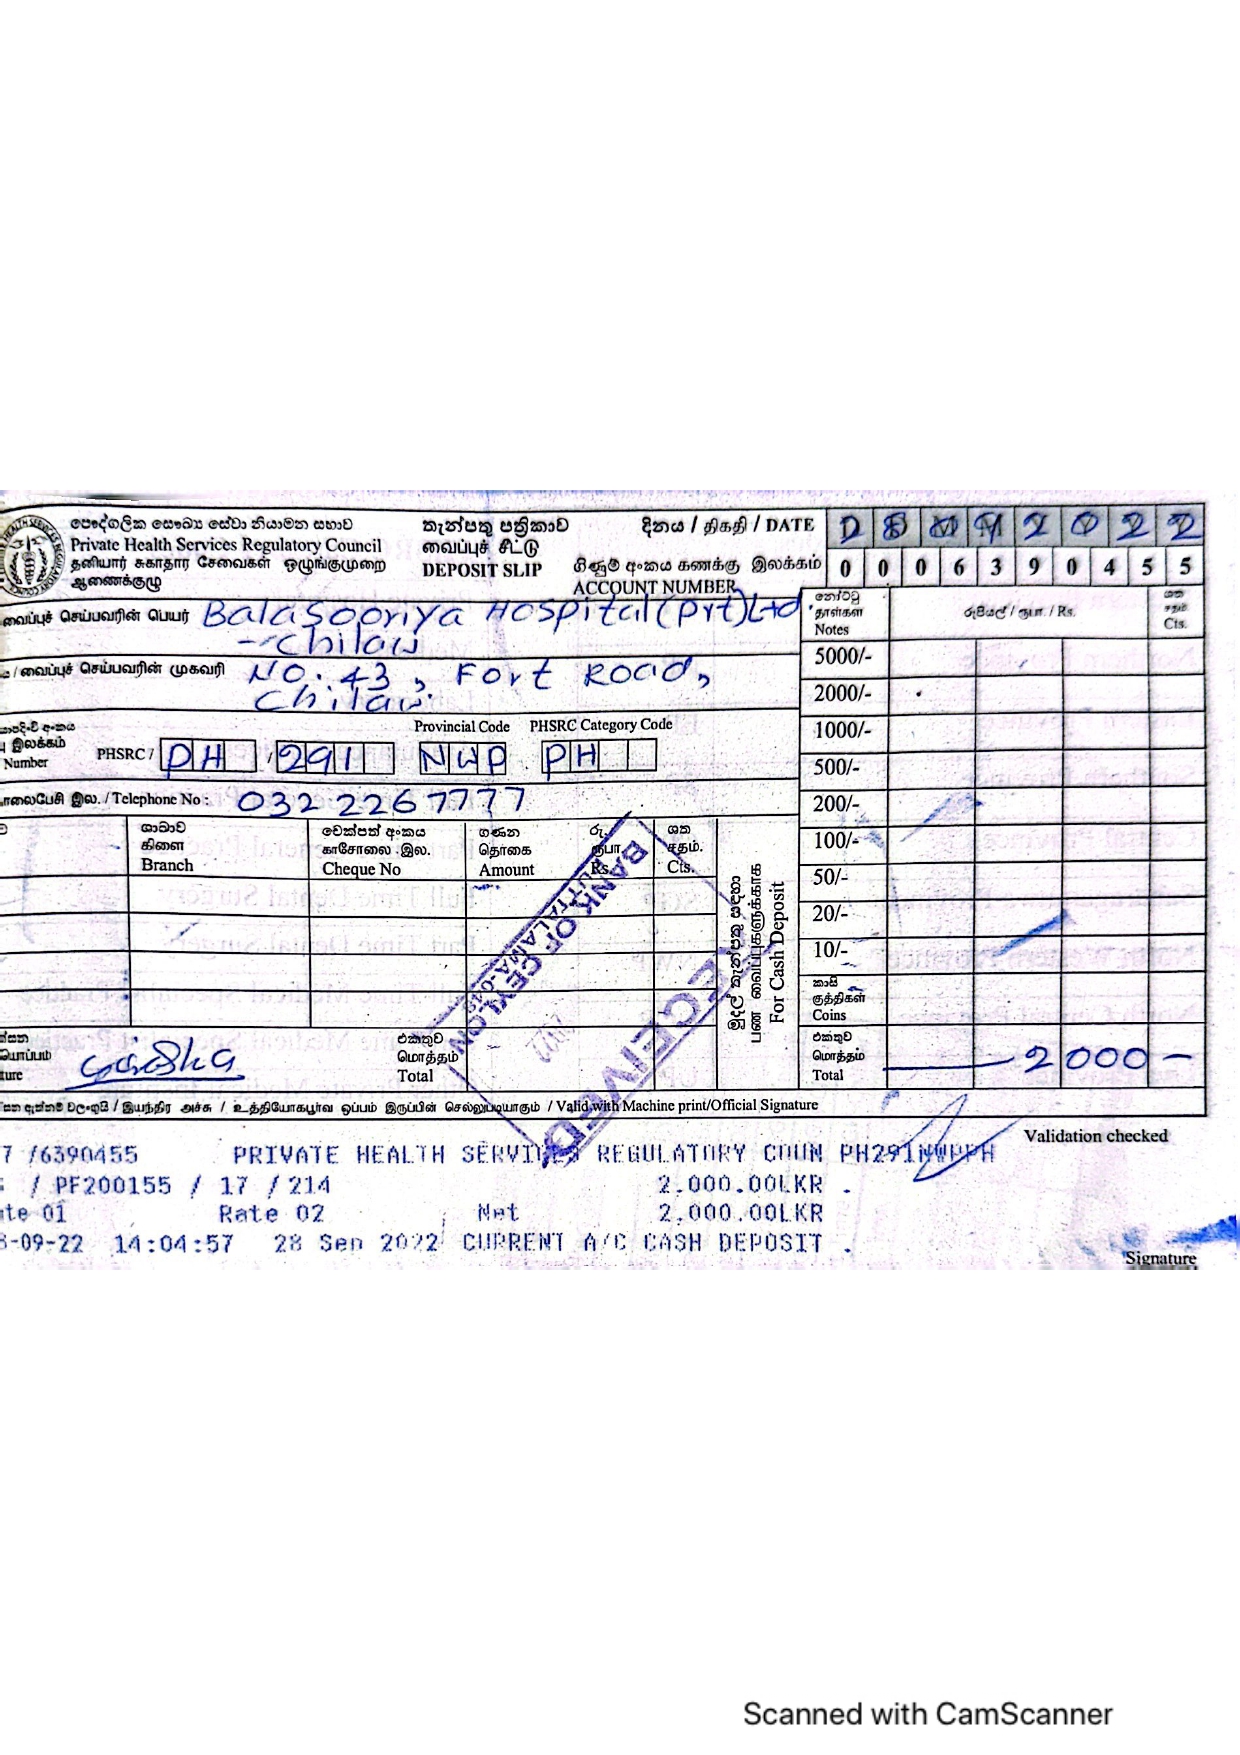 පෞද්ගලික සෞඛ්‍ය සේවා නියාමන සභාව
Private Health Services Regulatory Council
தனியார் சுகாதார சேவைகள் ஒழுங்குமுறை
ஆணைக்குழு
කැන්පතු පත්‍රිකාව
வைப்புச் சீட்டு
DEPOSIT SLIP
දිනය / திகதி / DATE
2022
ගිණුම් අංකය கணக்கு இலக்கம்
ACCOUNT NUMBER
0 0 0 6 3 9 0 4 5 5
வைப்பு செய்பவரின் பெயர் Balasooriya Hospital (Pvt) Ltd
- Chilaw
/ வைப்புச் செய்பவரின் முகவரி No. 43, Fort Road,
Chilaw.
இலக்கம்
Number
PHSRC / PH / 291
Provincial Code
NWP
PHSRC Category Code
PH
இல. / Telephone No : 032 2267777
ශාඛාව
கிளை
Branch
චෙක්පත් අංකය
காசோலை இல.
Cheque No
ගණන
தொகை
Amount
රු.
ரூபா.
Rs.
ශත
சதம்.
Cts.
මුදල් තැන්පතු සඳහා
பண வைப்புகளுக்காக
For Cash Deposit
නෝට්ටු
தாள்கள்
Notes
රුපියල් / ரூபா. / Rs.
ශත
சதம்
Cts.
5000/-
2000/-
1000/-
500/-
200/-
100/-
50/-
20/-
10/-
කාසි
குத்திகள்
Coins
එකතුව
மொத்தம்
Total
2000 —
එකතුව
மொத்தம்
Total
BANK OF CEYLON
RECEIVED
/ இயந்திர அச்சு / உத்தியோகபூர்வ ஒப்பம் இருப்பின் செல்லுபடியாகும் / Valid with Machine print/Official Signature
Validation checked
7 /6390455 PRIVATE HEALTH SERVICES REGULATORY COUN PH291NWPPH
/ PF200155 / 17 / 214 2,000.00LKR
Rate 02 Net 2,000.00LKR
-09-22 14:04:57 28 Sep 2022 CURRENT A/C CASH DEPOSIT
Signature
Scanned with CamScanner